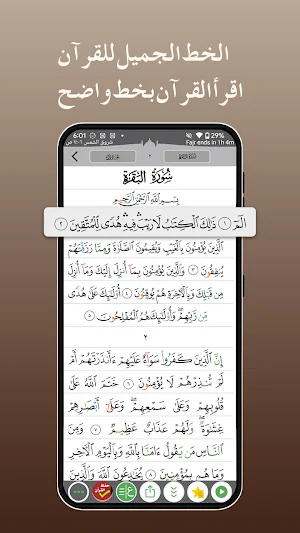 الخط الجميل للقرآن
اقرأ القرآن بخط واضح
6:01
29%
شروق الشمس ٦:٠٦ ص
Fajr ends in 1h 4m
٢
سُورَةُ البَقَرَةِ
بِسْمِ اللَّهِ الرَّحْمَٰنِ الرَّحِيمِ
الٓمٓ ۝١ ذَٰلِكَ الْكِتَٰبُ لَا رَيْبَ ۛ فِيهِ ۛ هُدًى لِّلْمُتَّقِينَ ۝٢
الَّذِينَ يُؤْمِنُونَ بِالْغَيْبِ وَيُقِيمُونَ الصَّلَوٰةَ وَمِمَّا رَزَقْنَٰهُمْ
يُنفِقُونَ ۝٣ وَالَّذِينَ يُؤْمِنُونَ بِمَآ أُنزِلَ إِلَيْكَ وَمَآ أُنزِلَ
مِن قَبْلِكَ وَبِالْءَاخِرَةِ هُمْ يُوقِنُونَ ۝٤ أُو۟لَٰٓئِكَ عَلَىٰ هُدًى
مِّن رَّبِّهِمْ ۖ وَأُو۟لَٰٓئِكَ هُمُ الْمُفْلِحُونَ ۝٥
٢
إِنَّ الَّذِينَ كَفَرُوا۟ سَوَآءٌ عَلَيْهِمْ ءَأَنذَرْتَهُمْ أَمْ
لَمْ تُنذِرْهُمْ لَا يُؤْمِنُونَ ۝٦ خَتَمَ اللَّهُ عَلَىٰ
قُلُوبِهِمْ وَعَلَىٰ سَمْعِهِمْ ۖ وَعَلَىٰٓ أَبْصَٰرِهِمْ
غِشَٰوَةٌ ۖ وَلَهُمْ عَذَابٌ عَظِيمٌ ۝٧ وَمِنَ
النَّاسِ مَن يَقُولُ ءَامَنَّا بِاللَّهِ وَبِالْيَوْمِ الْءَاخِرِ
وَمَا هُم بِمُؤْمِنِينَ ۝٨ يُخَٰدِعُونَ اللَّهَ وَالَّذِينَ